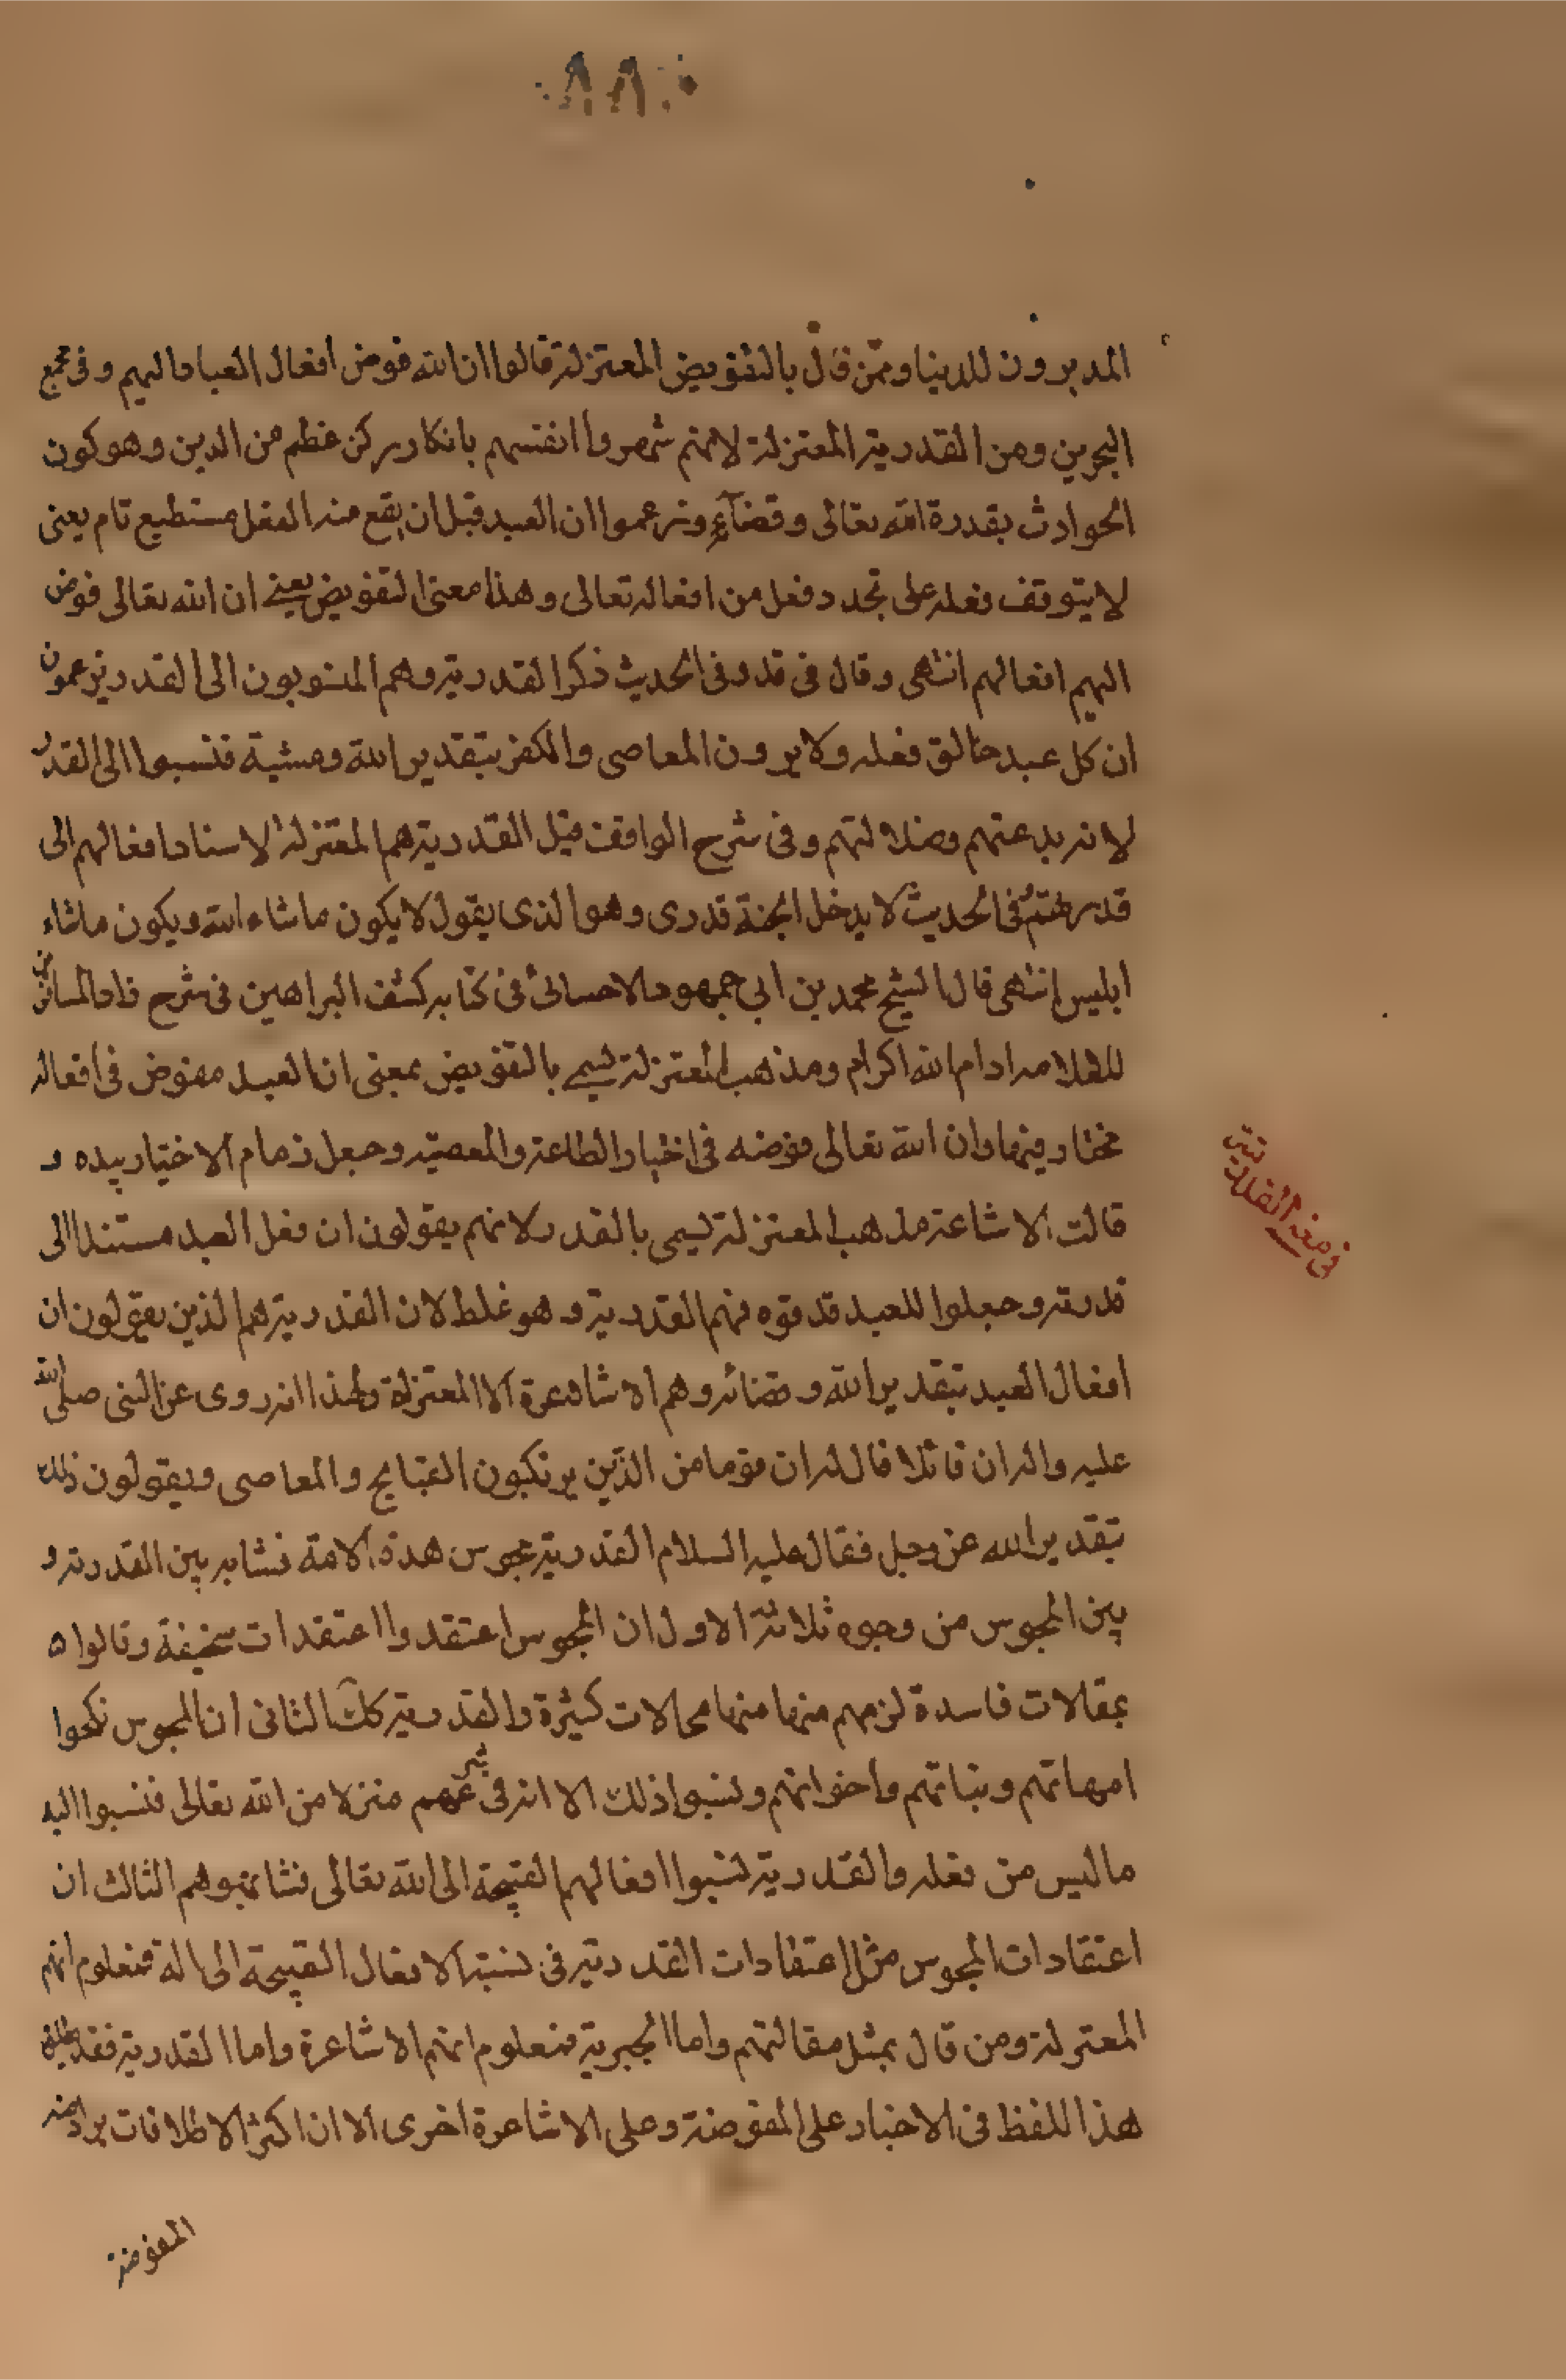 ٨٨
المدبرون للدنيا وممن قال بالتفويض المعتزلة قالوا ان الله فوض افعال العباد اليهم وفى مجمع
البحرين ومن القدرية المعتزلة لانهم شهروا انفسهم بانكار ركن عظم من الدين وهو كون
الحوادث بقدرة الله تعالى وقضآئه وزعموا ان العبد قبل ان يقع منه الفعل مستطيع تام يعنى
لا يتوقف فعله على تجدد فعل من افعاله تعالى وهذا معنى التفويض يعنى ان الله تعالى فوض
اليهم افعالهم انتهى وقال فى قدر وفى الحديث ذكر القدرية وهم المنسوبون الى القدر ويزعمون
ان كل عبد خالق فعله ولا يرون المعاصى والكفر بتقدير الله ومشية فنسبوا الى القدر
لانه بدعتهم وضلالتهم وفى شرح الواقف قيل القدرية هم المعتزلة لاسناد افعالهم الى
قدرتهم فى الحديث لا يدخل الجنة قدرى وهو الذى يقول لا يكون ما شاء الله ويكون ما شاء
ابليس انتهى قال الشيخ محمد بن ابي جمهور الاحسائى فى كتابه كشف البراهين فى شرح زاد المسافرين
للعلامه ادام الله اكرام ومذهب المعتزلة يسمى بالتفويض بمعنى ان العبد مفوض فى افعاله
مختار فيها وان الله تعالى فوضه فى اختيار الطاعة والمعصية وجعل زمام الاختيار بيده و
قالت الاشاعة مذهب المعتزلة يسمى بالقدر لانهم يقولون ان فعل العبد مستندا الى
قدرته وجعلوا للعبد قد قوه فهم القدرية وهو غلط لان القدرية هم الذين يقولون ان
افعال العبد بتقدير الله وقضائه وهم الاشاعرة لا المعتزلة ولهذا انه روى عن النبى صلى الله
عليه واله ان قائلا قال له ان قوما من الذين يرتكبون القبايح والمعاصى ويقولون ذلك
بتقدير الله عز وجل فقال عليه السلام القدرية مجوس هذه الامة نشابه بين القدرية و
بين المجوس من وجوه ثلاثة الاول ان المجوس اعتقدوا اعتقدات سخيفة وقالوا ه
بمقالات فاسدة لزمهم منها منها محالات كثيرة والقدرية كك الثانى ان المجوس نكحوا
امهاتهم وبناتهم واخواتهم ونسبوا ذلك الا انه فى شرعهم منزلا من الله تعالى فنسبوا اليه
ما ليس من فعله والقدرية نسبوا افعالهم القبيحة الى الله تعالى فشابهوهم الثالث ان
اعتقادات المجوس مثل اعتقادات القدرية فى نسبة الافعال القبيحة الى اله فمعلوم انهم
المعتزلة ومن قال بمثل مقالتهم واما الجبرية فمعلوم انهم الاشاعرة واما القدرية فقد يطلق
هذا اللفظ فى الاخبار على المفوضة وعلى الاشاعرة اخرى الا ان اكثر الاطلاقات يراد منه
المفوضة
فى معنى القدرية